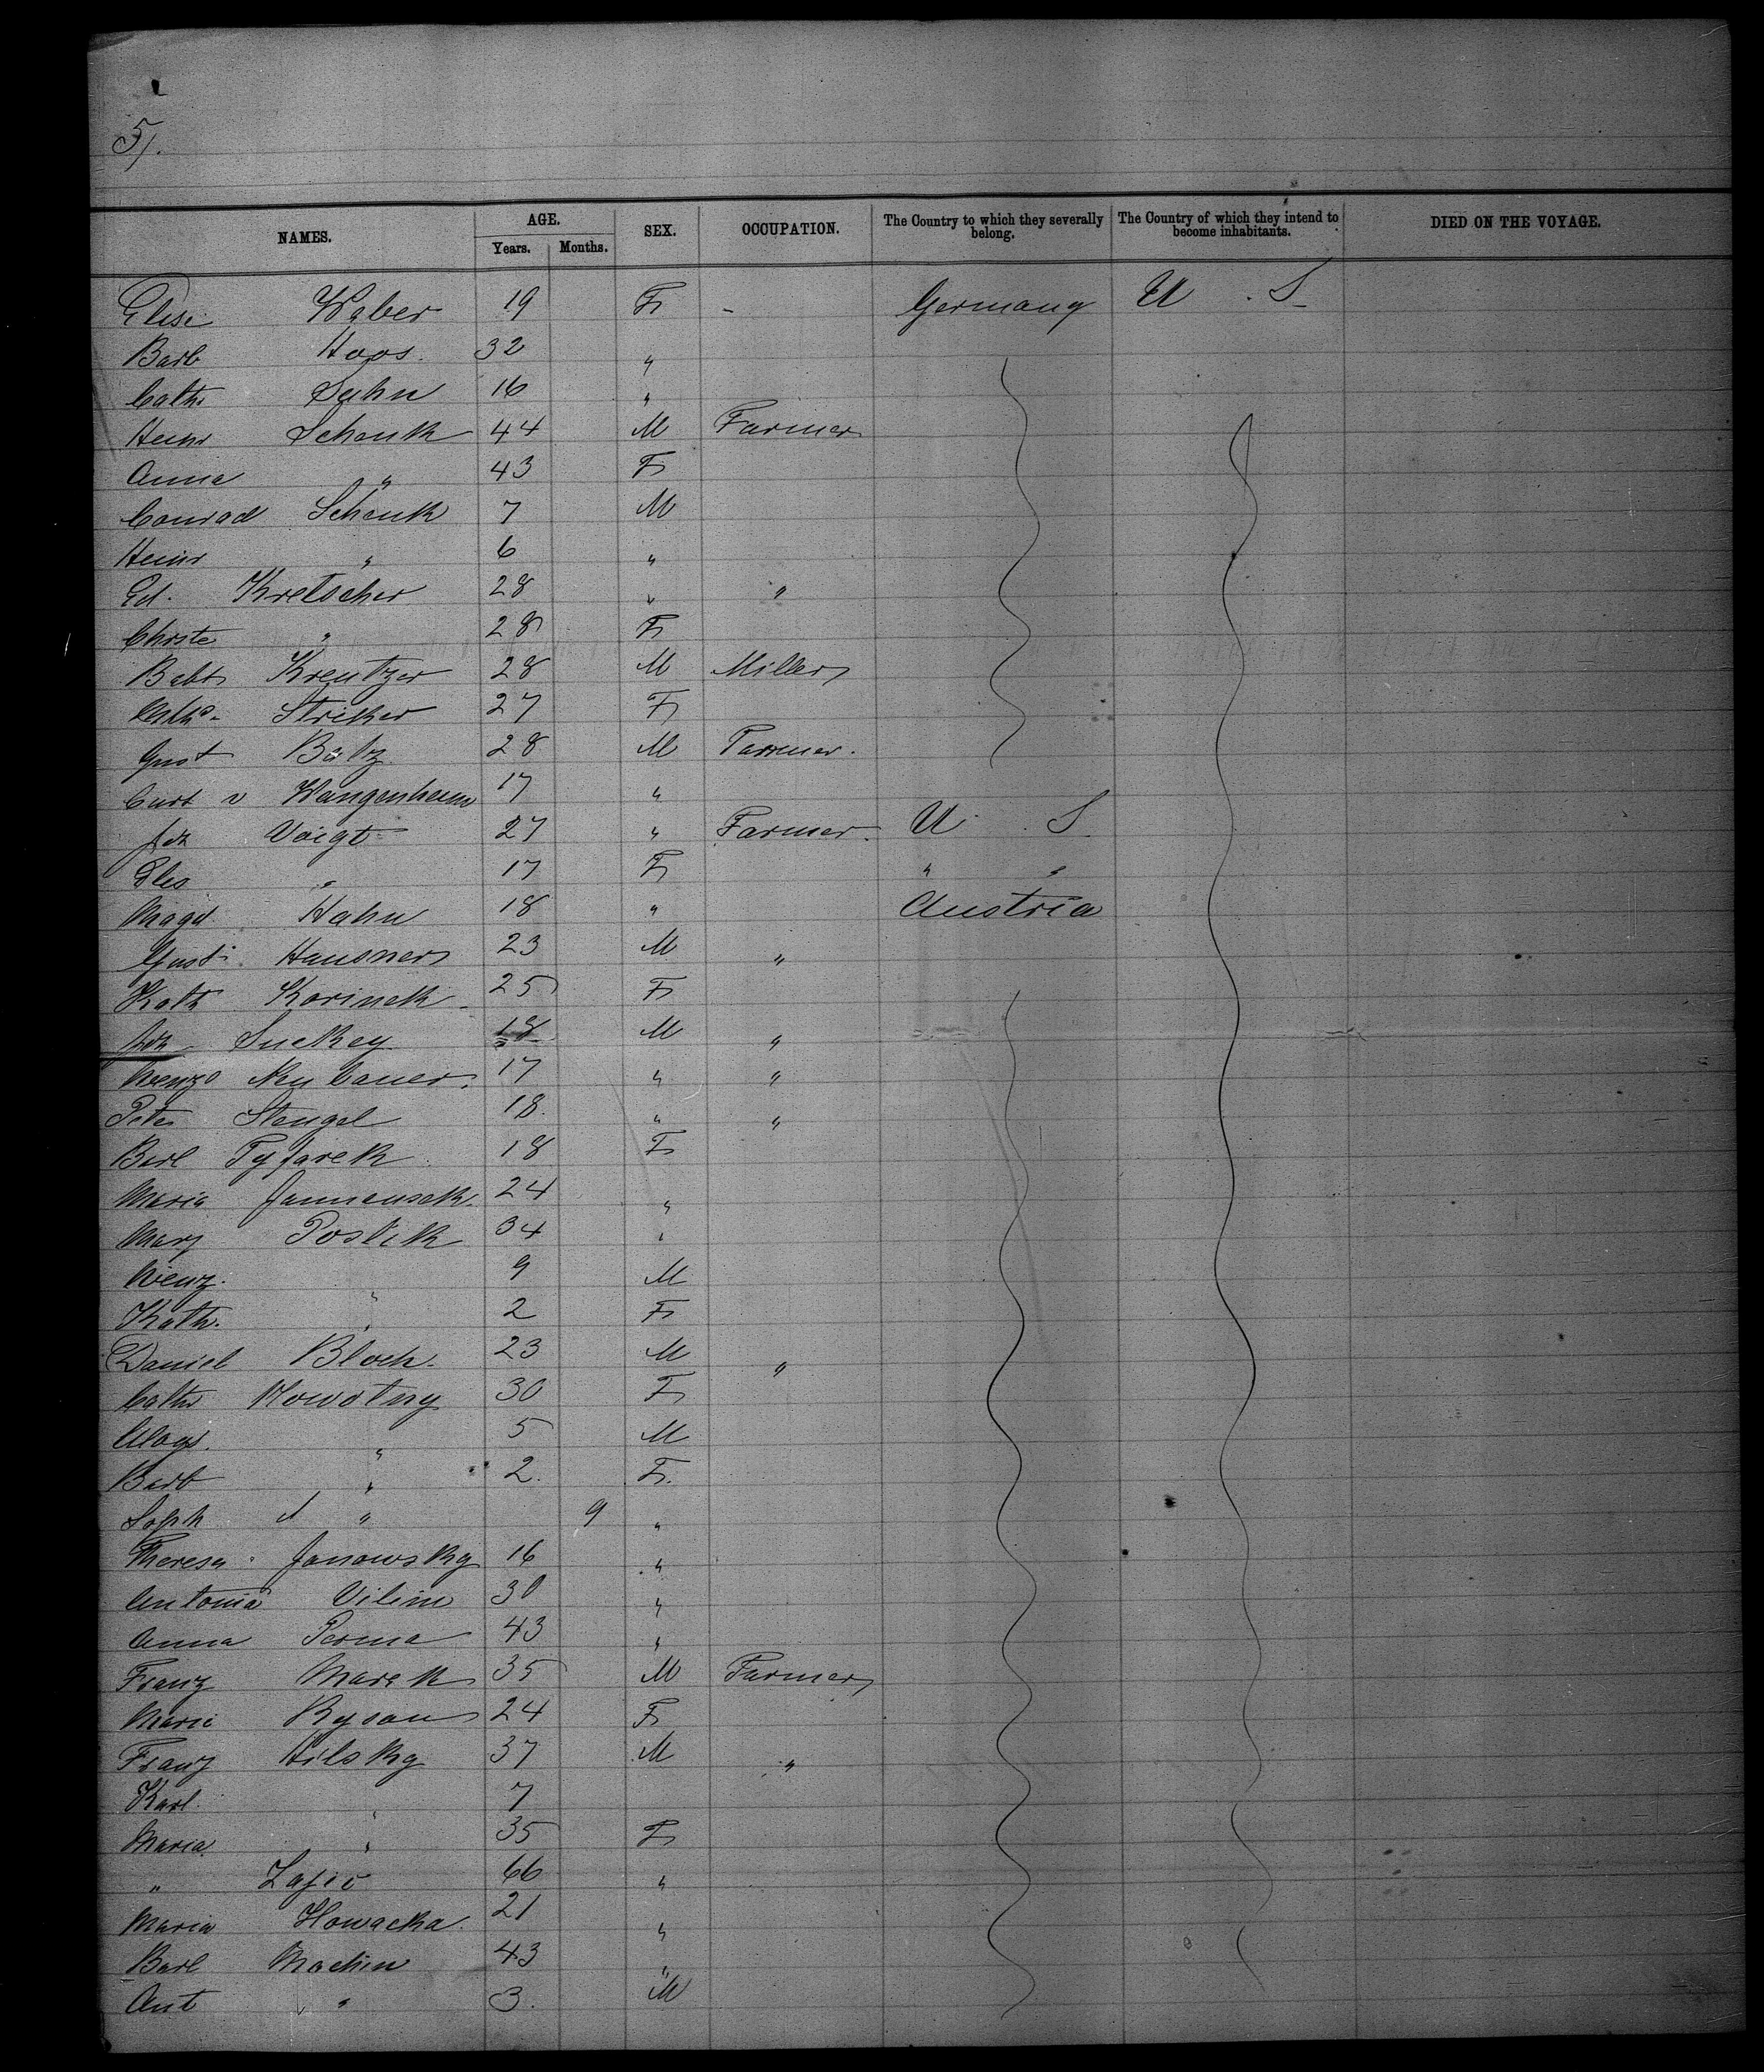 5/.
NAMES. AGE. SEX. OCCUPATION. The Country to which they severally belong. The Country of which they intend to become inhabitants. DIED ON THE VOYAGE.
Years. Months.
Elise Weber 19 F - Germany U. S.
Barb Hoos. 32 "
Cath. 16 "
Heinr Schenk 44 M Farmer
Anna " 43 F
Conrad Schenk 7 M
Heinr " 6 "
Ed. Kretscher 28 " "
Christe " 28 F
Kreutzer 28 M Miller
Cath. Striker 27 F
Gust Bälz 28 M Farmer.
Curt v Wangenheim 17 "
Voigt 27 " Farmer. U. S.
" 17 F " "
Magd Hahn 18 " Austria
Gust. Hausner 23 M "
Kath Korinek 25 F
Suckey 18 M "
Wenz Neubauer. 17 " "
Peter Stengel 18. " "
18 F
Maria 24 "
Mary 34 "
Wenz. " 9 M
Kath. " 2 F
Daniel Bloch. 23 M "
Cath Nowotny 30 F
Aloys. " 5 M
Barb " 2. F.
Soph " 9 "
Theresa Janowsky 16 "
Antonia Vilim 30 "
Anna Perma 43 "
Franz Marek 35 M Farmer
Marie Rysan 24 F
Franz Hilsky 37 M "
Karl. " 7
Maria. " 35 F
" 66 "
Maria 21 "
Machin 43 "
Ant " 3. M